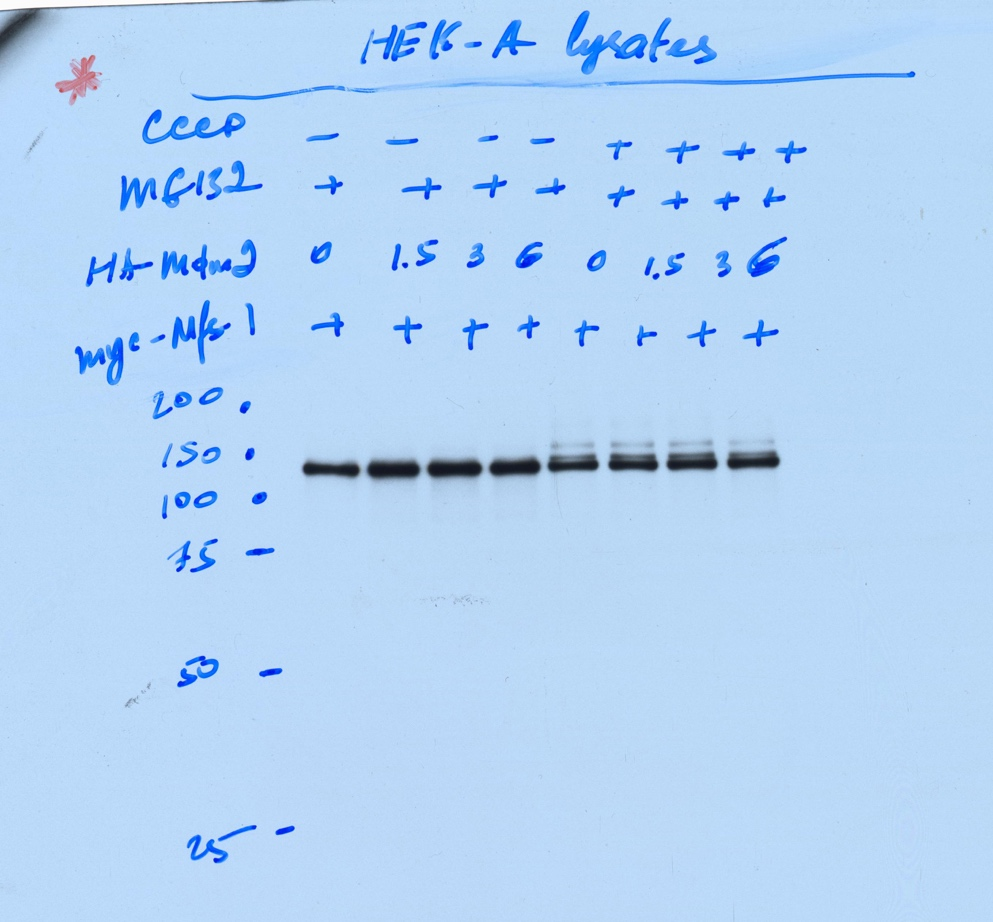 HEK-A lysates
CCCP - - - - + + + +
MG132 + + + + + + + +
HA-Mdm2 0 1.5 3 6 0 1.5 3 6
myc-Mfn1 + + + + + + + +
200
150
100
75 -
50 -
25 -